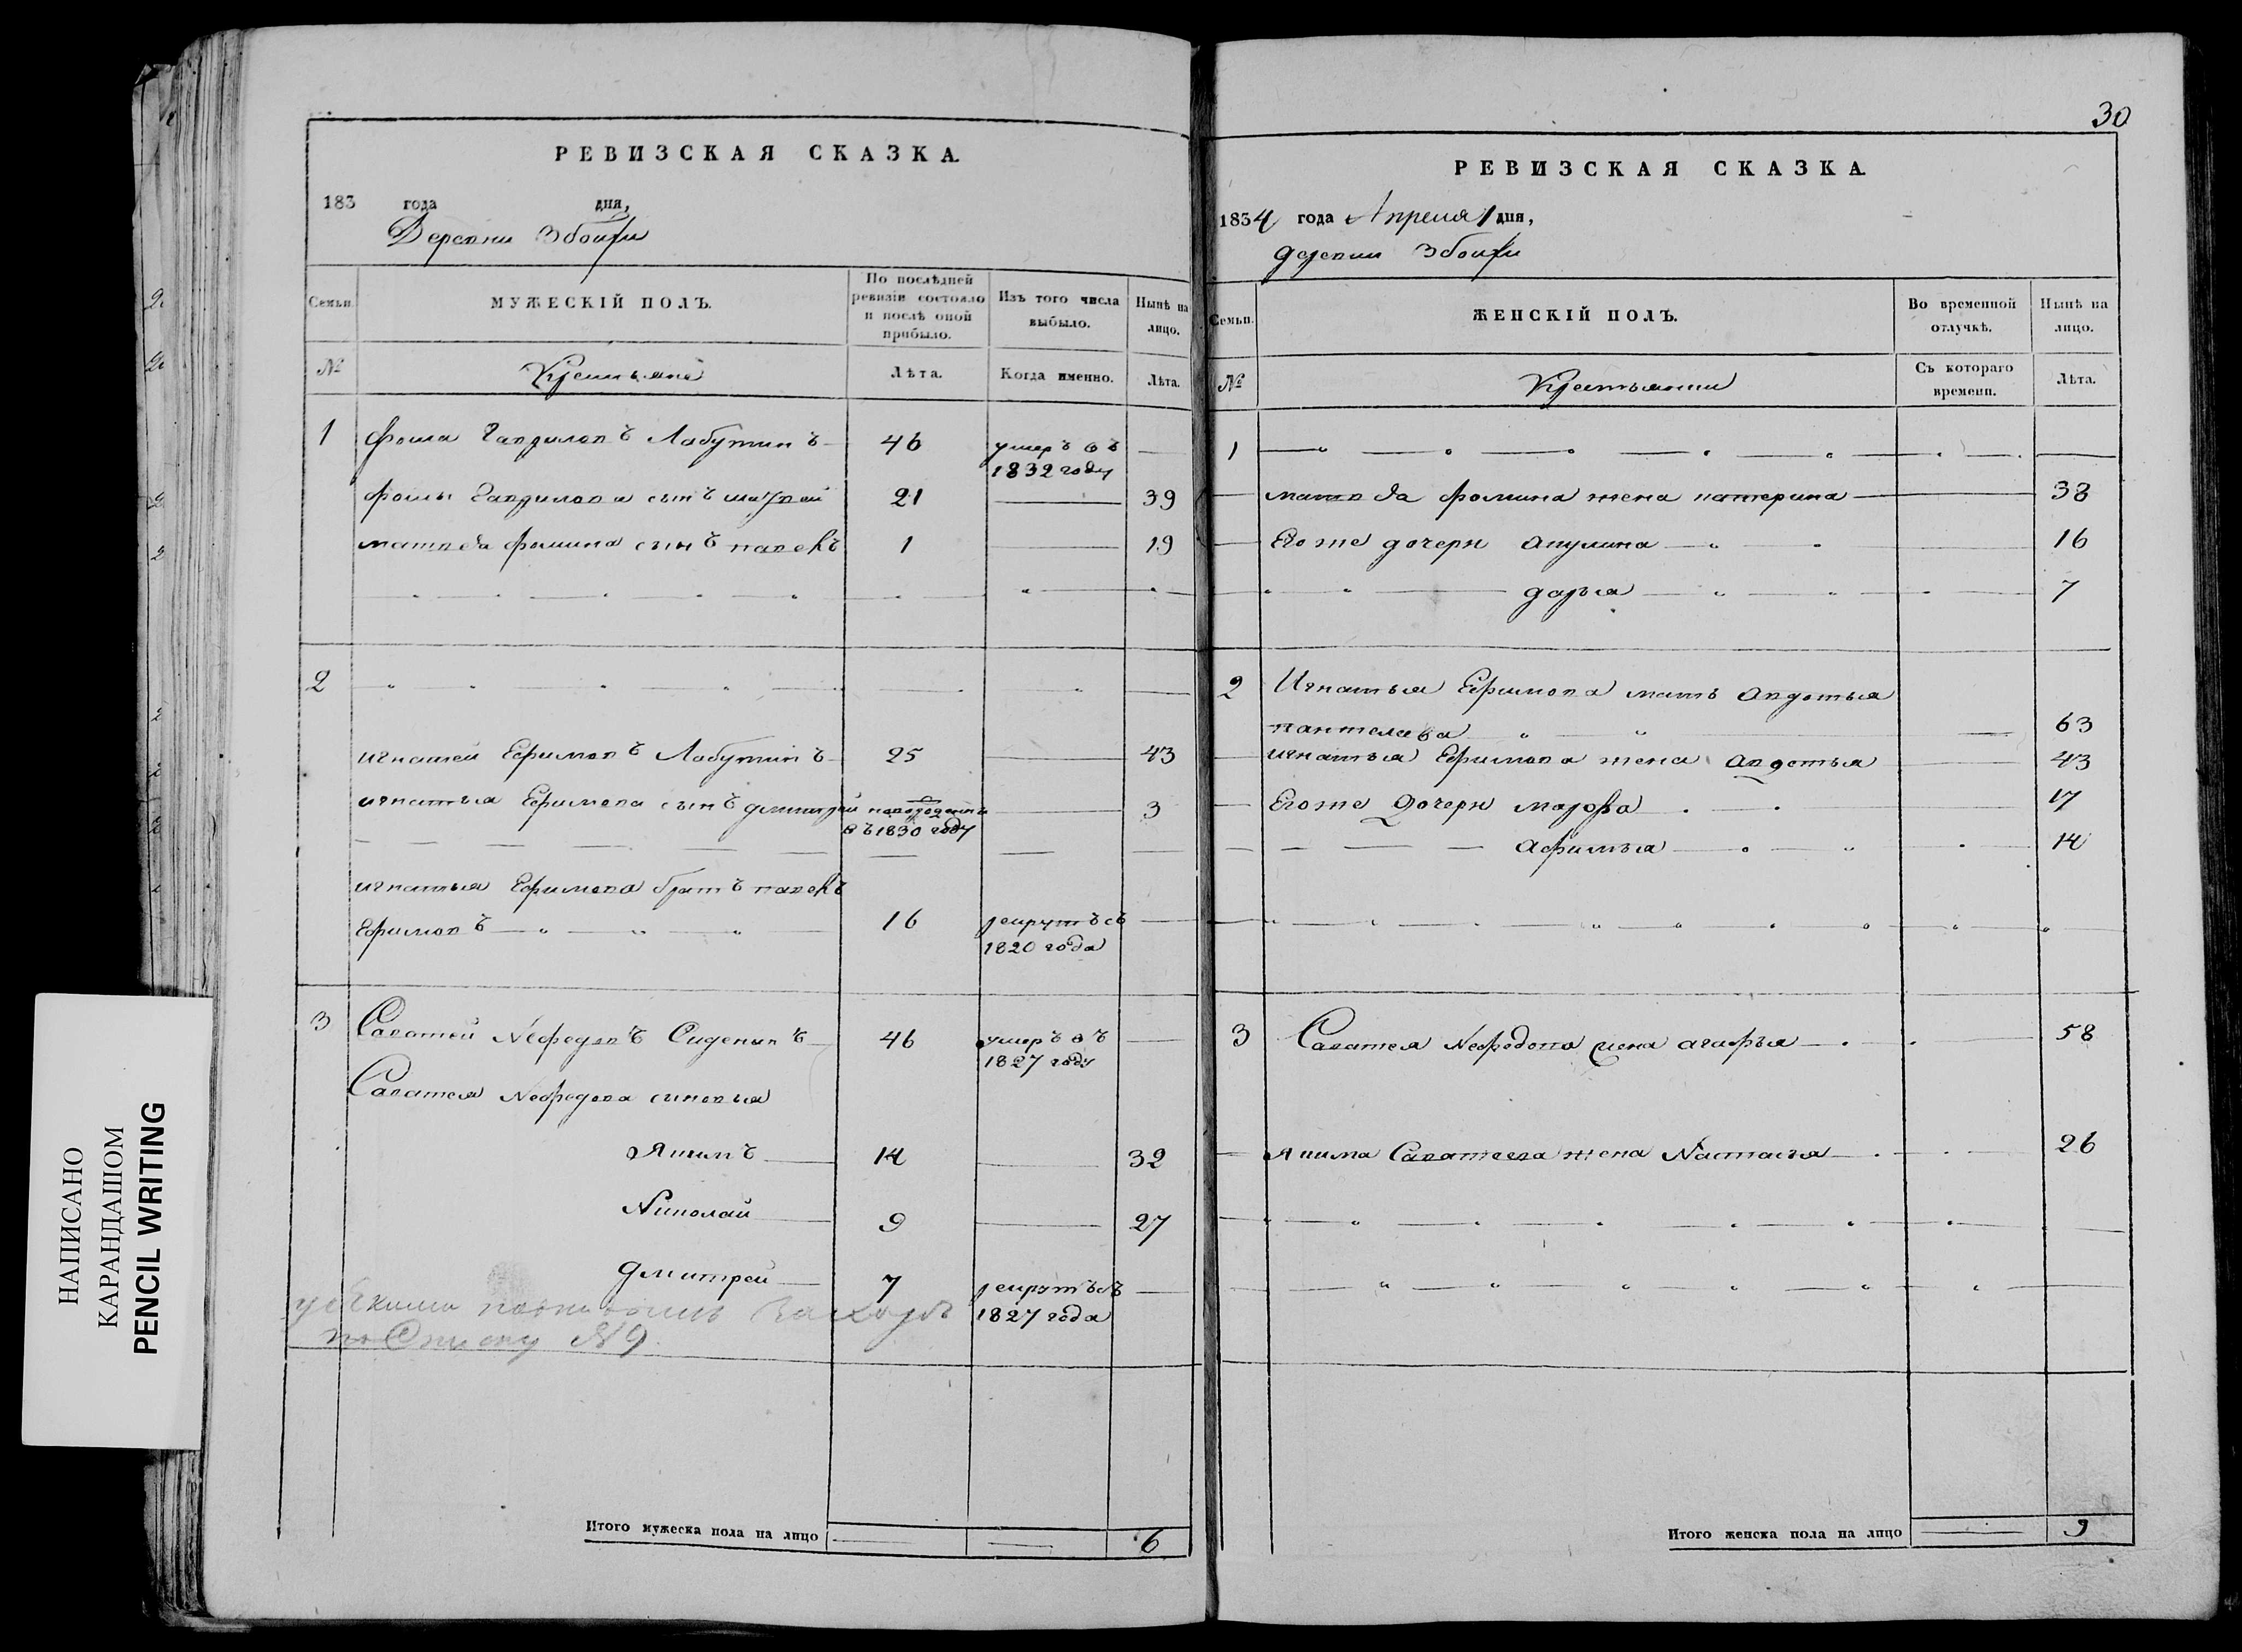 РЕВИЗСКАЯ СКАЗКА.
183 года дня,
Деревни Збоижи
Семьи.
МУЖЕСКІЙ ПОЛЪ.
По послѣдней ревизіи состояло и послѣ оной прибыло.
Изъ того числа выбыло.
Нынѣ на лицо.
№
Крестьяне
Лѣта.
Когда именно.
Лѣта.
1 фома Гавриловъ Лабутинъ 46 умеръ въ
1832 году
фомы Гаврилова сынъ матвей 21 39
матвѣа фомина сынъ павелъ 1 19
2
игнатей Ефимовъ Лабутинъ 25 43
игнатья Ефимова сынъ дмитрей новорожденъ 3
въ 1830 году
игнатья Ефимова братъ павелъ
Ефимовъ 16 рекрутъ съ
1820 года
3 Саватей Нефедовъ Сиденинъ 46 умеръ въ
1827 году
Саватея Нефедова сыновья
Якимъ 14 32
Николай 9 27
дмитрей 7 рекрутъ съ
1827 года
по Списку №9.
Итого мужеска пола на лицо 6
30
РЕВИЗСКАЯ СКАЗКА.
1834 года Апреля 1 дня,
деревни Збоижи
Семьи.
ЖЕНСКІЙ ПОЛЪ.
Во временной отлучкѣ.
Нынѣ на лицо.
№
Крестьянки
Съ котораго времени.
Лѣта.
1
матвѣа фомина жена катерина 38
Его же дочери акулина 16
дарья 7
2 Игнатья Ефимова мать авдотья
пантелеева 63
игнатья Ефимова жена авдотья 43
Его же дочери марфа 17
афимья 14
3 Саватея Нефедова жена агафья 58
якима Саватеева жена Настасья 26
Итого женска пола на лицо 9
НАПИСАНО
КАРАНДАШОМ
PENCIL WRITING